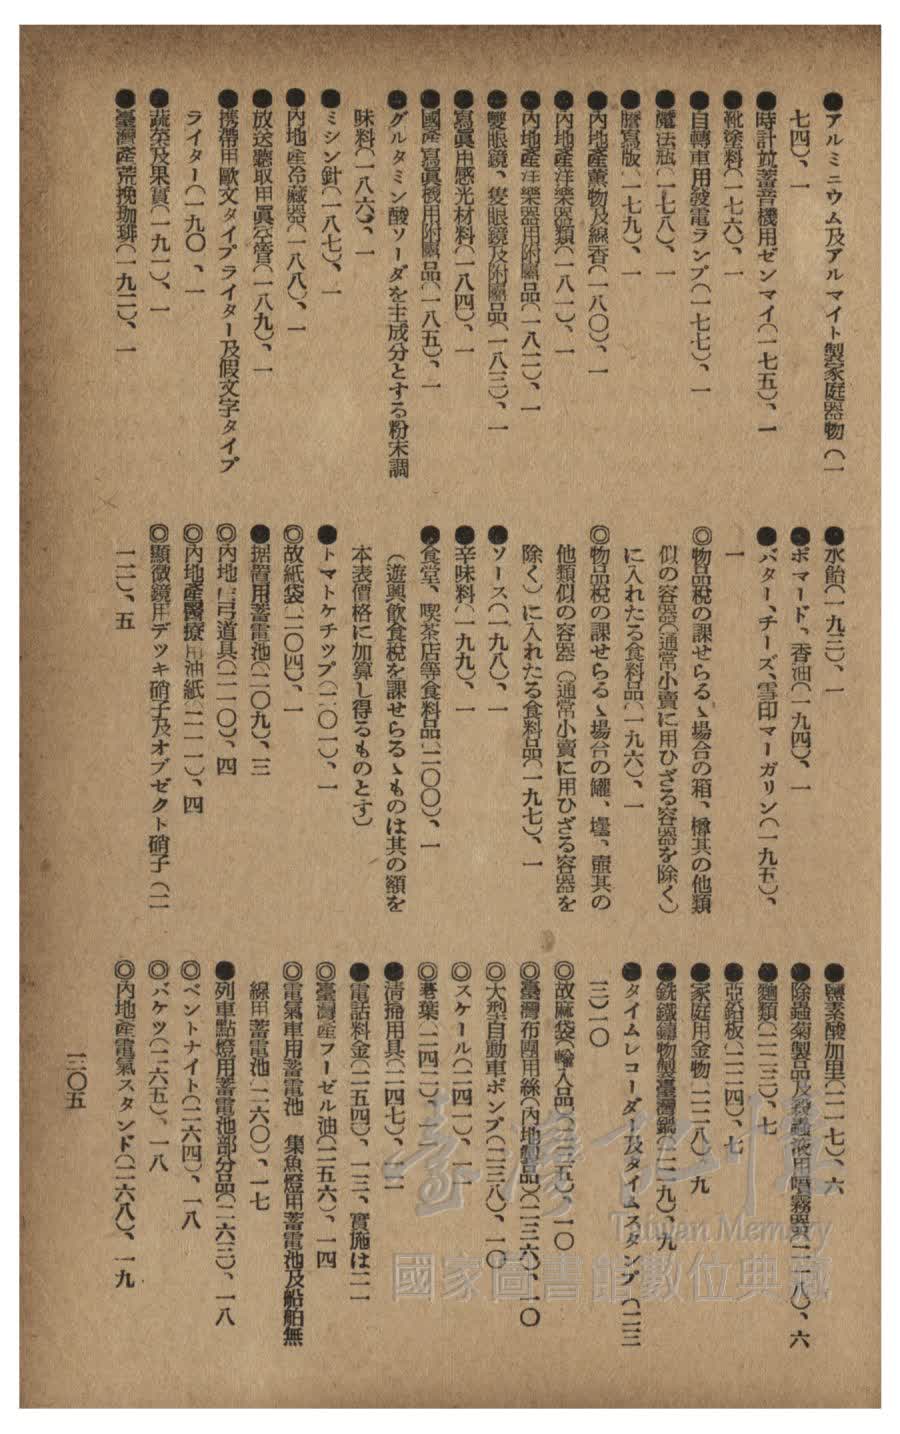 ●アルミニウム及アルマイト製家庭器物(一
七四)、一
●時計並蓄音機用ゼンマイ(一七五)、一
●靴塗料(一七六)、一
●自轉車用發電ランプ(一七七)、一
●魔法瓶(一七八)、一
●謄寫版(一七九)、一
●內地產薰物及線香(一八〇)、一
●內地產洋樂器類(一八一)、一
●內地產洋樂器用附屬品(一八二)、一
●雙眼鏡、隻眼鏡及附屬品(一八三)、一
●寫眞用感光材料(一八四)、一
●國產寫眞機用附屬品(一八五)、一
●グルタミン酸ソーダを主成分とする粉末調
味料(一八六)、一
●ミシン針(一八七)、一
●內地產冷藏器(一八八)、一
●放送聽取用眞空管(一八九)、一
●携帶用歐文タイプライター及假文字タイプ
ライター(一九〇、一
●蔬菜及果實(一九一)、一
●臺灣產荒挽珈琲(一九二)、一
●水飴(一九三)、一
●ポマード、香油(一九四)、一
●バター、チーズ、雪印マーガリン(一九五)、
一
◎物品稅の課せらるゝ場合の箱、樽其の他類
似の容器(通常小賣に用ひざる容器を除く)
に入れたる食料品(一九六)、一
◎物品稅の課せらるゝ場合の罐、壜、壺其の
他類似の容器(通常小賣に用ひざる容器を
除く)に入れたる食料品(一九七)、一
●ソース(一九八)、一
●辛味料(一九九)、一
●食堂、喫茶店等食料品(二〇〇)、一
(遊興飮食稅を課せらるゝものは其の額を
本表價格に加算し得るものとす)
●トマトケチツプ(二〇一)、一
◎故紙袋(二〇四)、一
●据置用蓄電池(二〇九)、三
◎內地產弓道具(二一〇)、四
◎內地產醫療用油紙(二一一)、四
◎顯微鏡用デツキ硝子及オブゼクト硝子(二
一二)、五
●鹽素酸加里(二一七)、六
●除蟲菊製品及殺蟲液用噴霧器(二一八)、六
●麵類(二二三)、七
●亞鉛板(二二四)、七
●家庭用金物(二二八)、九
●銑鐵鑄物製臺灣鍋(二二九)、九
●タイムレコーダー及タイムスタンプ(二三
三)一〇
◎故麻袋(輸入品)(二三五)、一〇
◎臺灣布團用綿(內地製品)(二三六)、一〇
◎大型自動車ポンプ(二三八)、一〇
◎スケール(二四一)、一一
◎荖葉(二四二)、一一
●淸掃用具(二四七)、一二
●電話料金(二五四)、一三、實施は二一
◎臺灣產フーゼル油(二五六)、一四
◎電氣車用蓄電池 集魚燈用蓄電池及船舶無
線用蓄電池(二六〇)、一七
●列車點燈用蓄電池部分品(二六三)、一八
◎ベントナイト(二六四)、一八
◎バケツ(二六五)、一八
◎內地產電氣スタンド(二六八)、一九
三〇五
臺灣記憶
Taiwan Memory
國家圖書館數位典藏